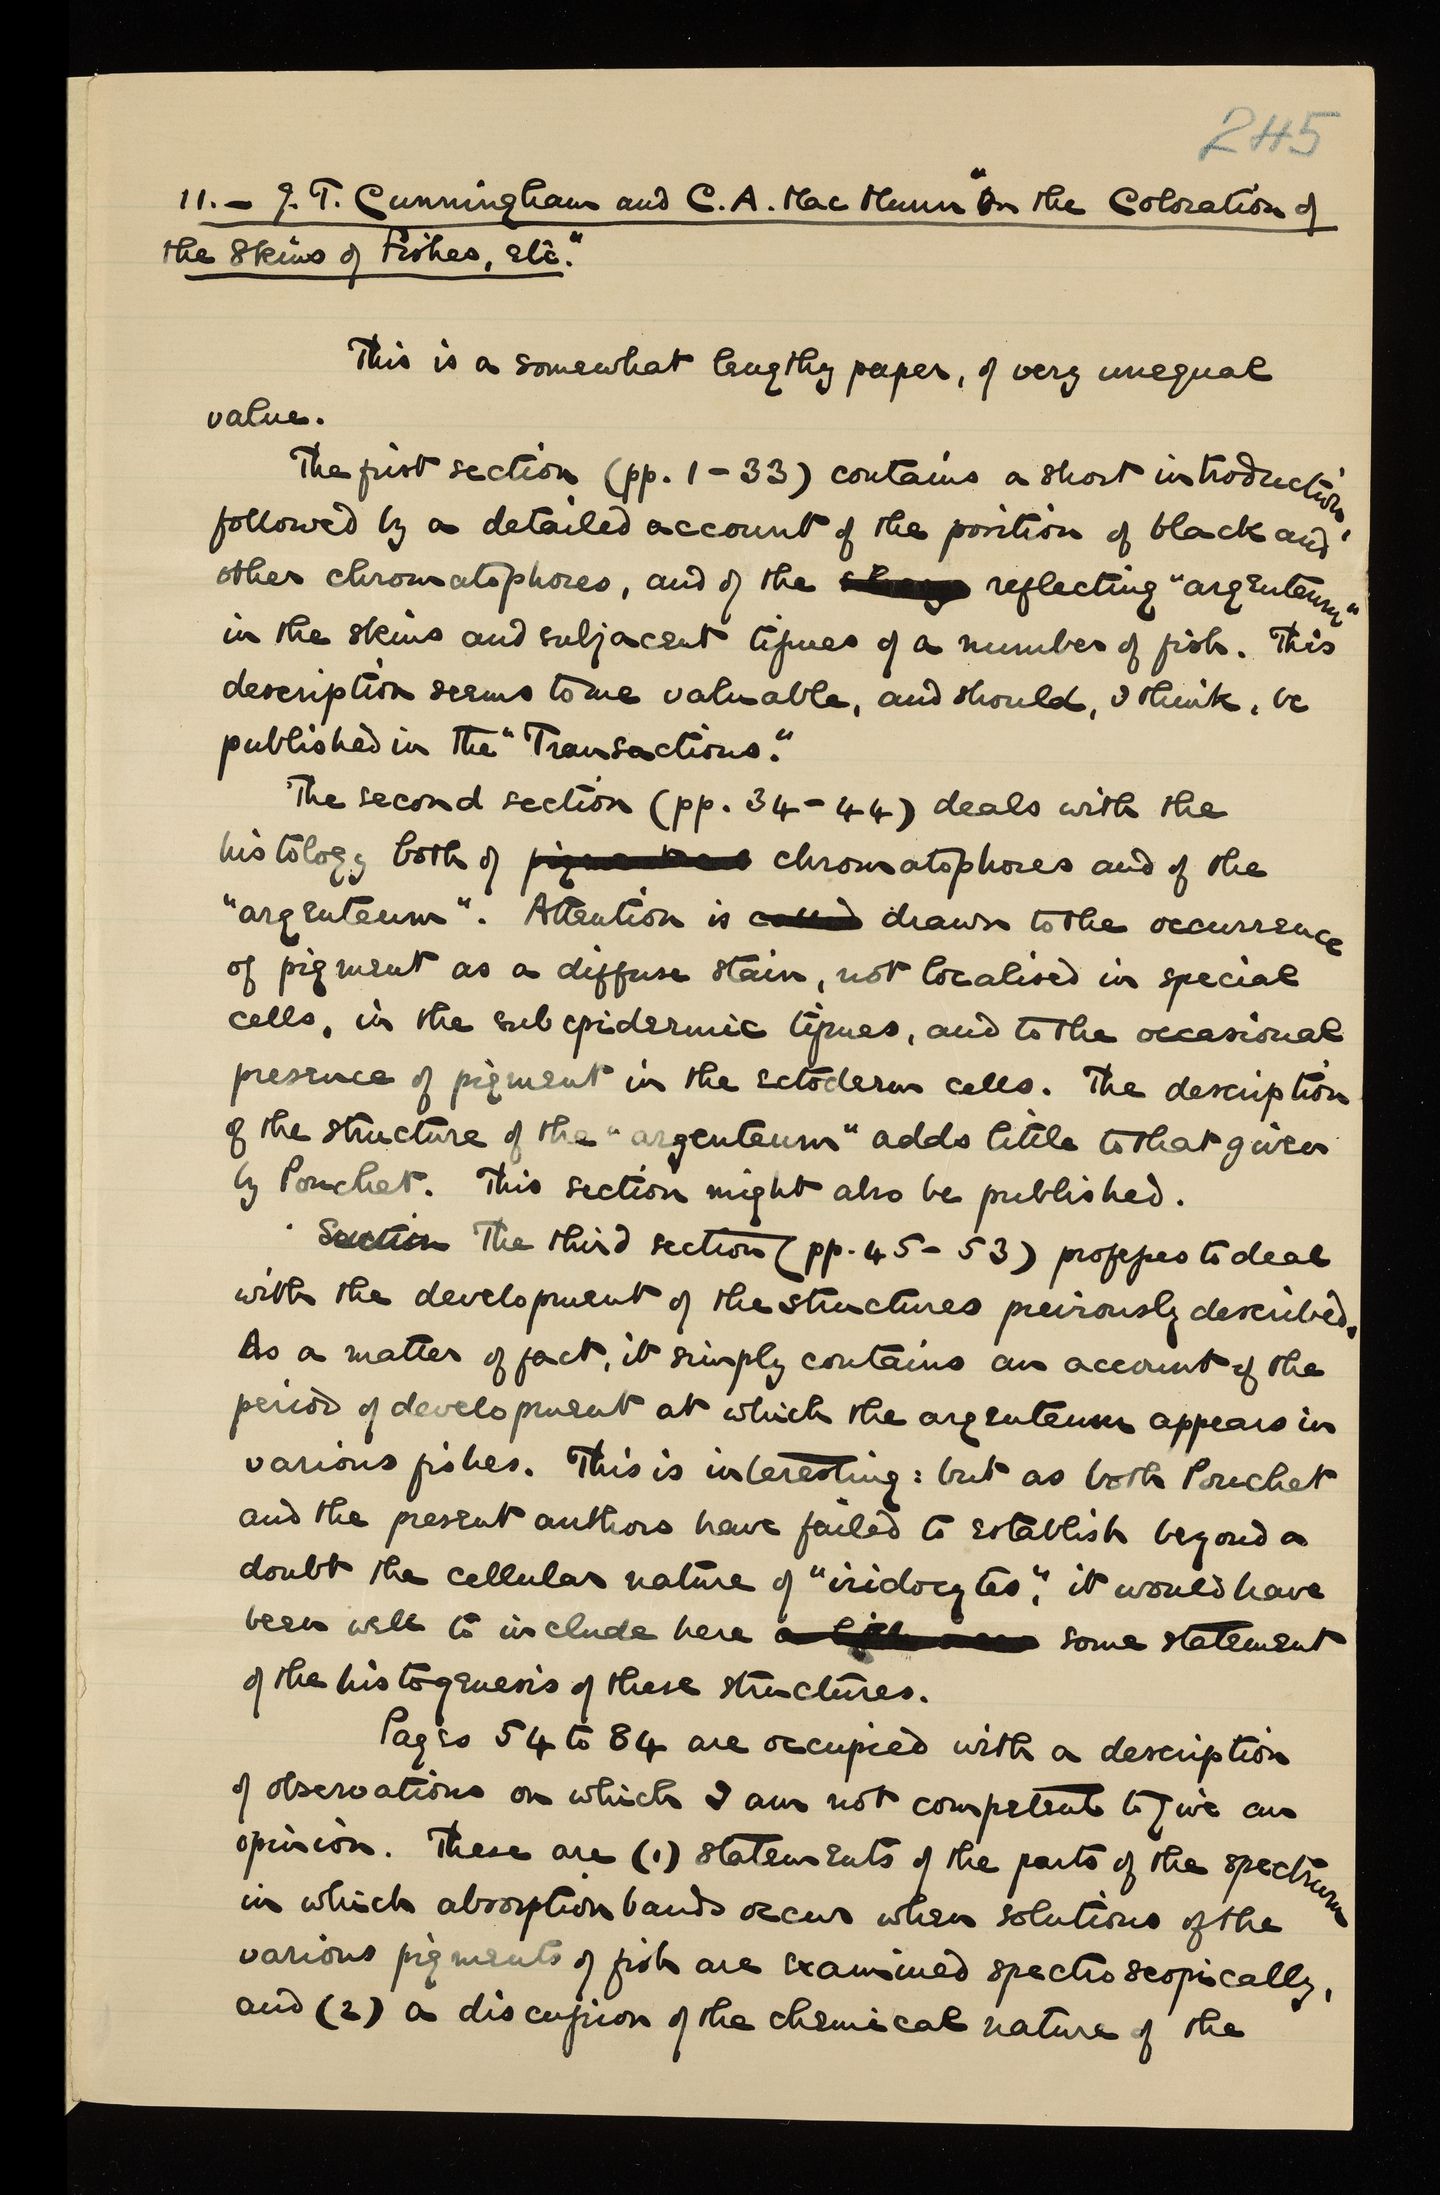 245
11.– J. T. Cunningham and C. A. Mac Munn "On the Coloration of
the Skins of Fishes, etc."
This is a somewhat lengthy paper, of very unequal
value.
The first section (pp. 1–33) contains a short introduction,
followed by a detailed account of the position of black and
other chromatophores, and of the reflecting "argenteum"
in the skins and subjacent tissues of a number of fish. This
description seems to me valuable, and should, I think, be
published in the "Transactions."
The second section (pp. 34–44) deals with the
histology both of pigmented chromatophores and of the
"argenteum". Attention is called drawn to the occurrence
of pigment as a diffuse stain, not localised in special
cells, in the subepidermic tissues, and to the occasional
presence of pigment in the ectoderm cells. The description
of the structure of the "argenteum" adds little to that given
by Pouchet. This section might also be published.
Section The third section (pp. 45–53) professes to deal
with the development of the structures previously described.
As a matter of fact, it simply contains an account of the
period of development at which the argenteum appears in
various fishes. This is interesting: but as both Pouchet
and the present authors have failed to establish beyond a
doubt the cellular nature of "iridocytes", it would have
been well to include here some statement
of the histogenesis of these structures.
Pages 54 to 84 are occupied with a description
of observations on which I am not competent to give an
opinion. These are (1) statements of the parts of the spectrum
in which absorption bands occur when solutions of the
various pigments of fish are examined spectroscopically,
and (2) a discussion of the chemical nature of the